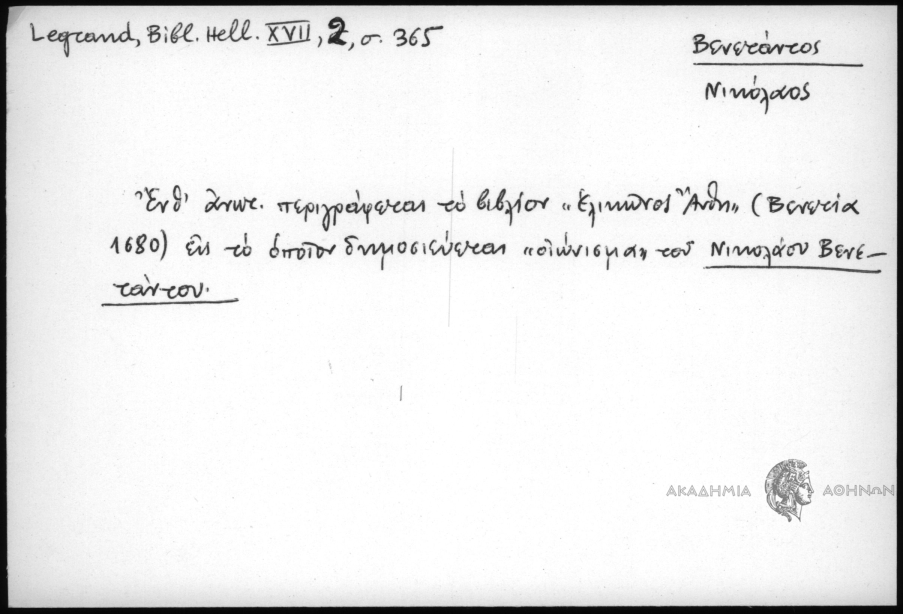 Legrand, Bibl. Hell. XVII, 2, σ. 365
Βενετάντος
Νικόλαος
Ἔνθ' ἀνωτ. περιγράφεται τὸ βιβλίον «Ἑλικῶνος Ἄνθη» (Βενετία
1680) εἰς τὸ ὁποῖον δημοσιεύεται «οἰώνισμα» τοῦ Νικολάου Βενε-
τάντου.
ΑΚΑΔΗΜΙΑ ΑΘΗΝΩΝ